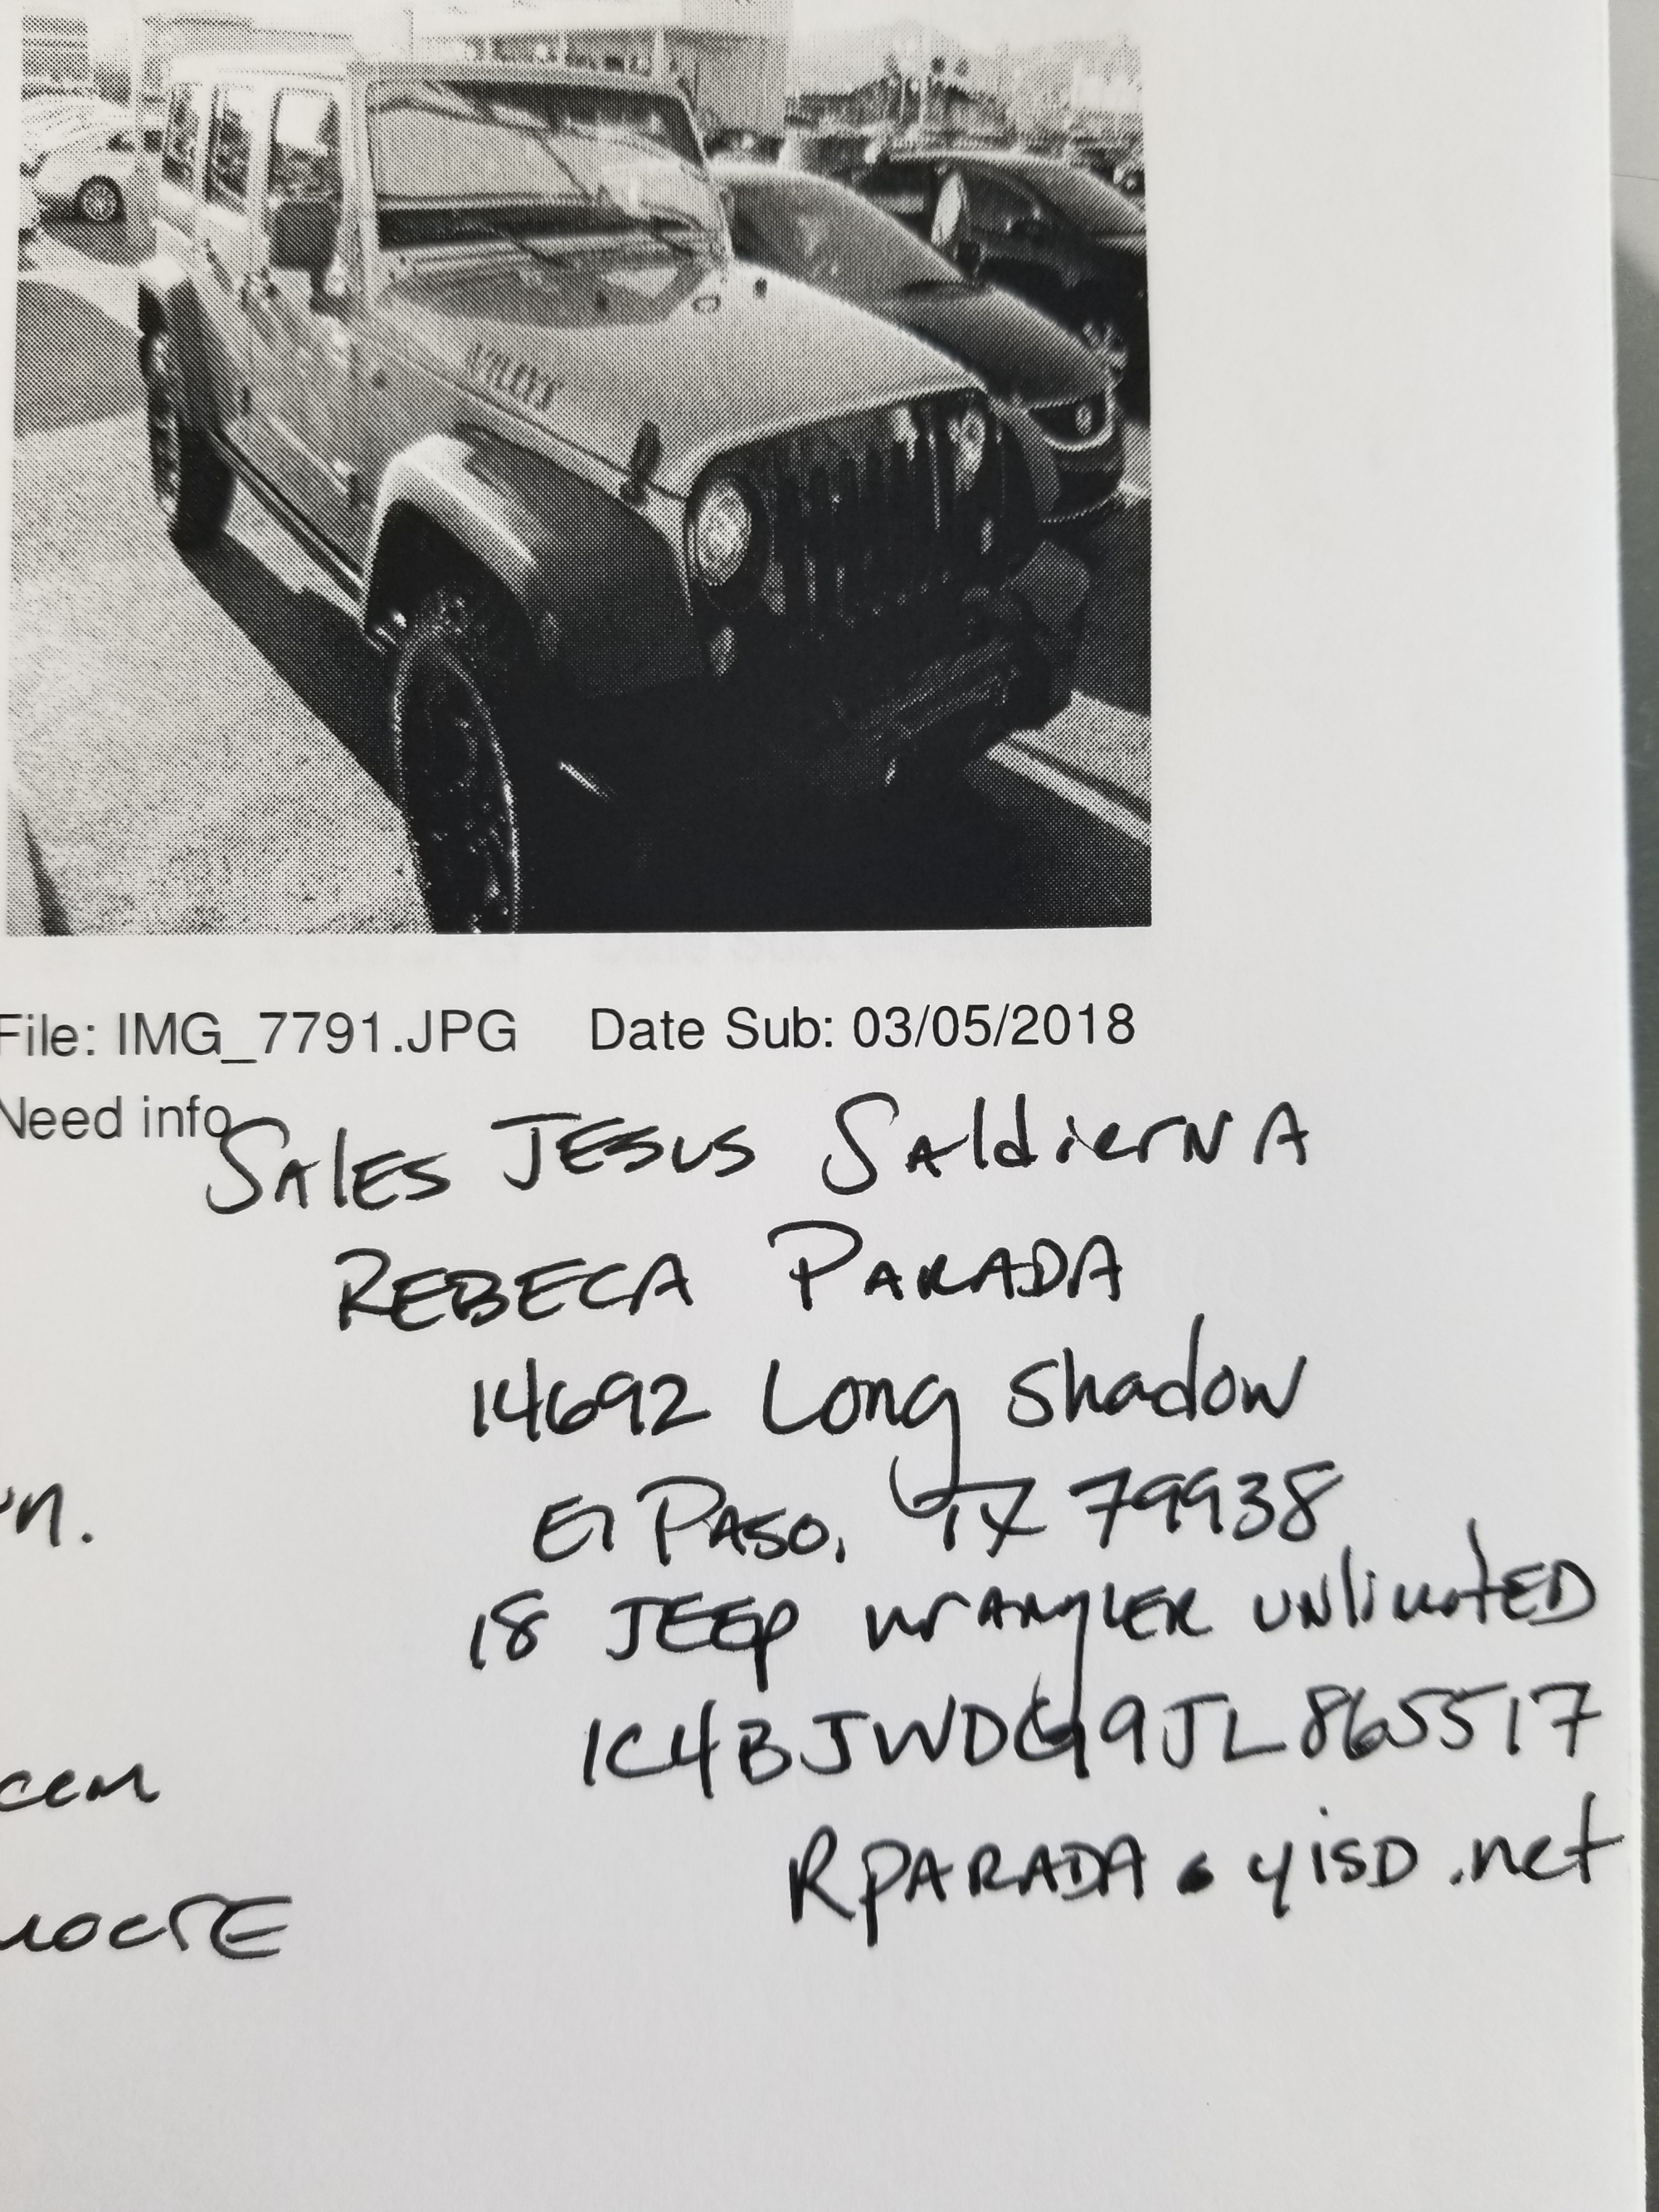 WILLYS
File: IMG_7791.JPG Date Sub: 03/05/2018
Need info
Sales JESUS SaldiernA
REBECA PARADA
14692 Long Shadow
El PASO, TX 79938
'n.
18 JEEP WRANGLER UNlimitED
1C4BJWDG9JL865517
cem
RPARADA • yisd.net